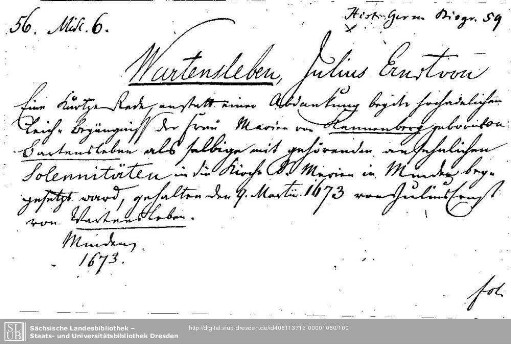 56. Misc. 6.
Hist. Germ. Biogr. 59
Wartensleben, Julius Ernst von
Eine Kurtze Rede, anstatt einer Abdankung bey der hochadelichen
Leich-Begängniß der Frau Marien von Kannenberg gebornen von
Wartensleben als selbige mit gehörenden ansehnlichen
Solennitäten in die Kirche S. Marien in Minden bey-
gesetzt ward, gehalten den 9. Martii 1673 von Julius Ernst
von Wartensleben.
Minden,
1673.
fol.
Sächsische Landesbibliothek –
Staats- und Universitätsbibliothek Dresden